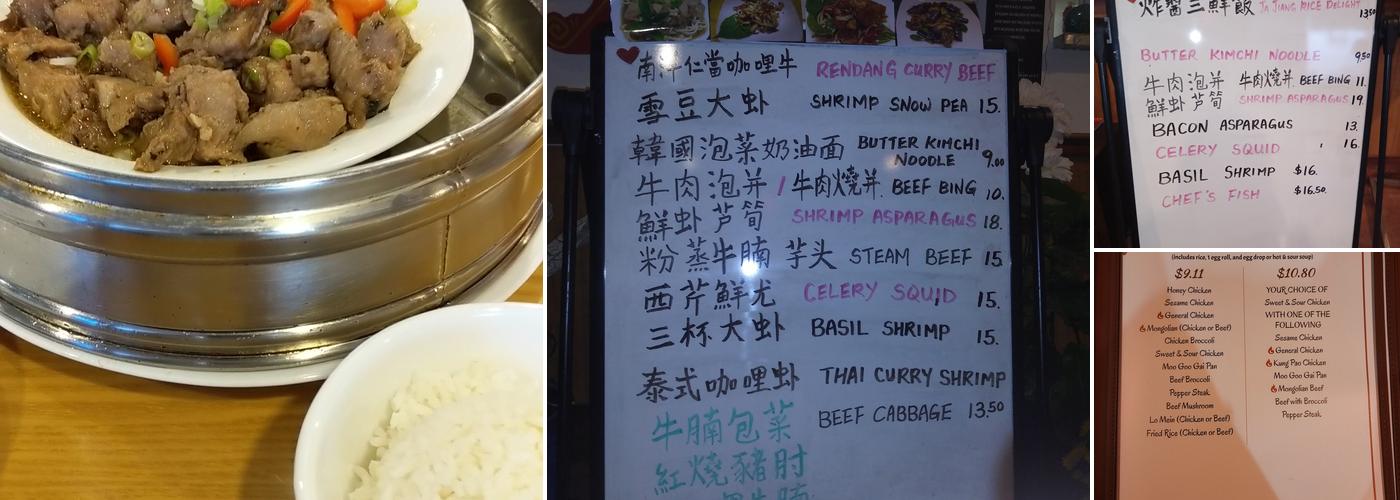 咖哩牛 RENDANG CURRY BEEF
雪豆大虾 SHRIMP SNOW PEA 15.
韓國泡菜奶油面 BUTTER KIMCHI NOODLE 9.00
牛肉泡并 / 牛肉燒并 BEEF BING 10.
鮮虾芦筍 SHRIMP ASPARAGUS 18.
粉蒸牛腩 芋头 STEAM BEEF 15
西芹鮮尤 CELERY SQUID 15.
三杯大虾 BASIL SHRIMP 15.
泰式咖哩虾 THAI CURRY SHRIMP
BEEF CABBAGE 13.50
牛腩包菜
紅燒豬肘
炸醬三鮮飯 JA JIANG RICE DELIGHT 13.50
BUTTER KIMCHI NOODLE 9.50
牛肉泡并 牛肉燒并 BEEF BING 11.
鮮虾芦筍 SHRIMP ASPARAGUS 19.
BACON ASPARAGUS 13.
CELERY SQUID 16.
BASIL SHRIMP $16.
CHEF'S FISH $16.50
(includes rice, 1 egg roll, and egg drop or hot & sour soup)
$9.11
Honey Chicken
Sesame Chicken
General Chicken
Mongolian (Chicken or Beef)
Chicken Broccoli
Sweet & Sour Chicken
Moo Goo Gai Pan
Beef Broccoli
Pepper Steak
Beef Mushroom
Lo Mein (Chicken or Beef)
Fried Rice (Chicken or Beef)
$10.80
YOUR CHOICE OF
Sweet & Sour Chicken
WITH ONE OF THE
FOLLOWING
Sesame Chicken
General Chicken
Kung Pao Chicken
Moo Goo Gai Pan
Mongolian Beef
Beef with Broccoli
Pepper Steak